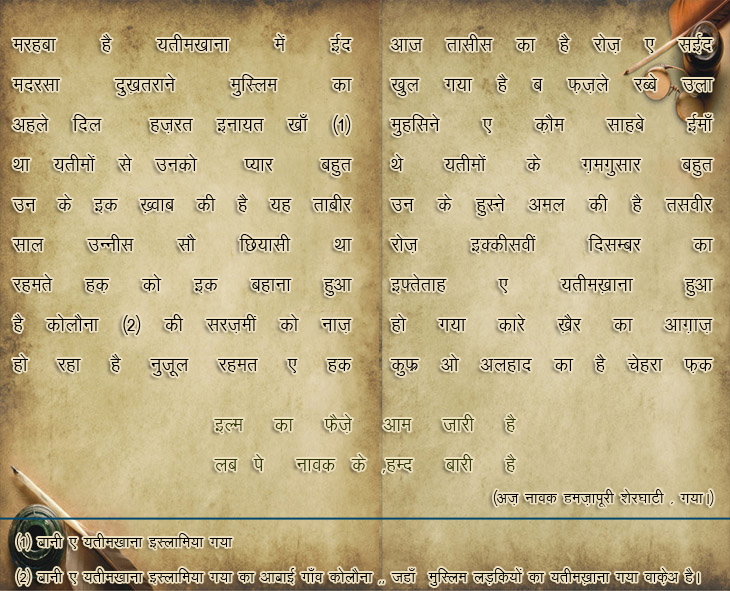 मरहबा है यतीमखाना में ईद आज तासीस का है रोज़ ए सईद
मदरसा दुख़तराने मुस्लिम का खुल गया है ब फ़ज़्ले रब्बे उला
अहले दिल हज़रत इनायत खाँ (1) मुहसिने ए क़ौम साहबे ईमाँ
था यतीमों से उनको प्यार बहुत थे यतीमों के ग़मगुसार बहुत
उन के इक ख़्वाब की है यह ताबीर उन के हुस्ने अमल की है तसवीर
साल उन्नीस सौ छियासी था रोज़ इक्कीसवीं दिसम्बर का
रहमते हक़ को इक़ बहाना हुआ इफ्तेताह ए यतीमख़ाना हुआ
है कोलौना (2) की सरज़मीं को नाज़ हो गया कारे ख़ैर का आग़ाज़
हो रहा है नुज़ूल रहमत ए हक़ कुफ्र ओ अलहाद का है चेहरा फ़क़
इल्म का फैज़े आम जारी है
लब पे नावक के ,हम्द बारी है
(अज़ नावक हमज़ापूरी शेरघाटी , गया।)
(1) बानी ए यतीमखाना इस्लामिया गया
(2) बानी ए यतीमखाना इस्लामिया गया का आबाई गाँव कोलौना ,, जहाँ मुस्लिम लड़कियों का यतीमख़ाना गया वाक़ेअ है।